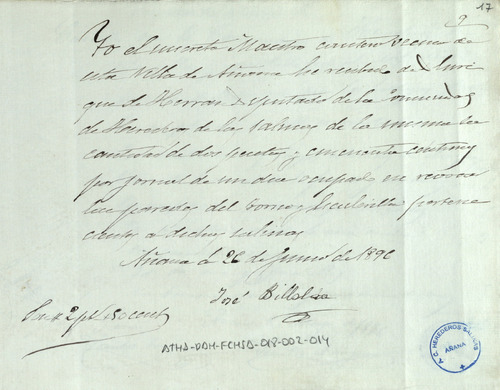 17
Yo el inscrito Maestro cantero vecino de
esta Villa de Añana he recibido de Enri
que de Herran Diputado de la Comunidad
de Herederos de las Salinas de la misma la
cantidad de dos pesetas y cincuenta centimos
por jornal de un dia ocupado en revocar
las paredes del torno y pertene
cientes a dichas salinas
Añana á 26 de Junio de 1896
José Billaba
Son 2 pts 50 cent
ATHA-DAH-FCHSA-018-002-014
A.C. HEREDEROS SALINAS
AÑANA